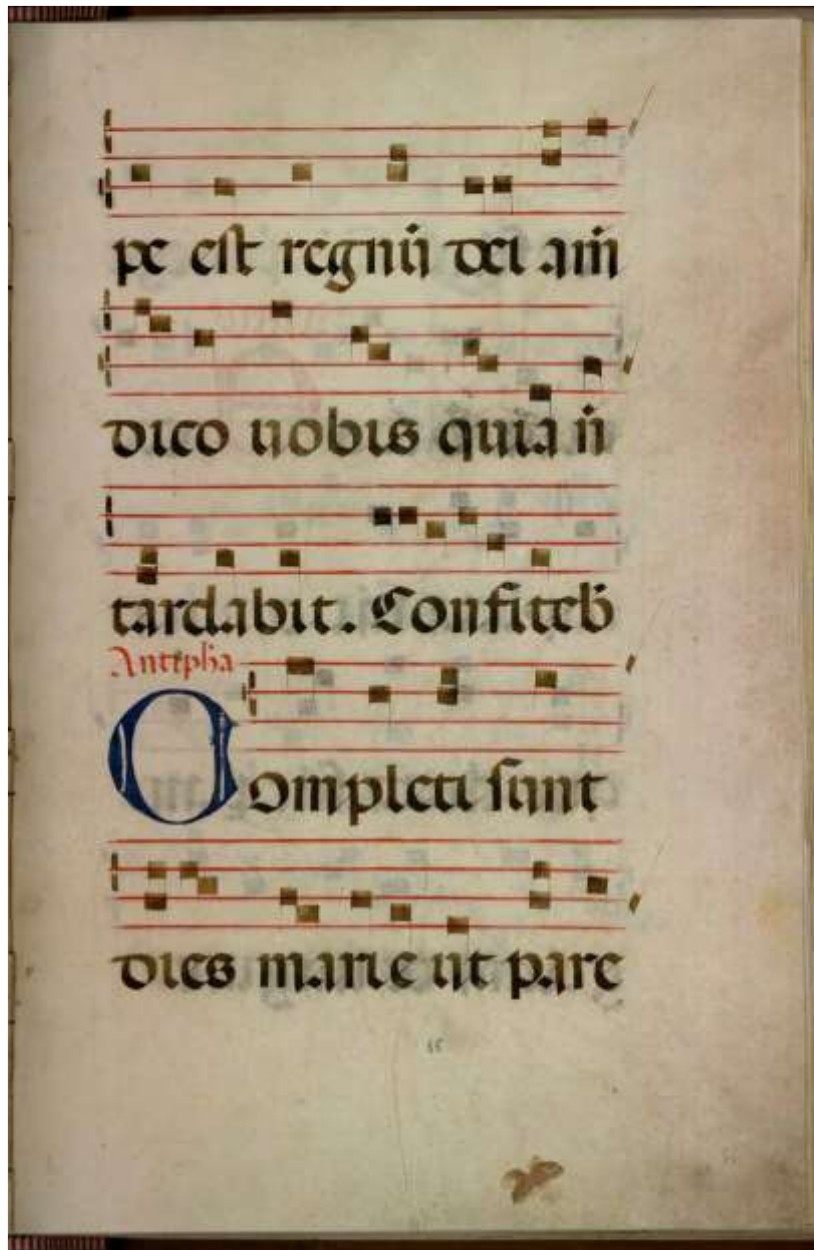 pe est regnū dei am̄
dico uobis quia n̄
tardabit. Confiteb̄
Antiph̄a
Completi sunt
dies marie ut pare